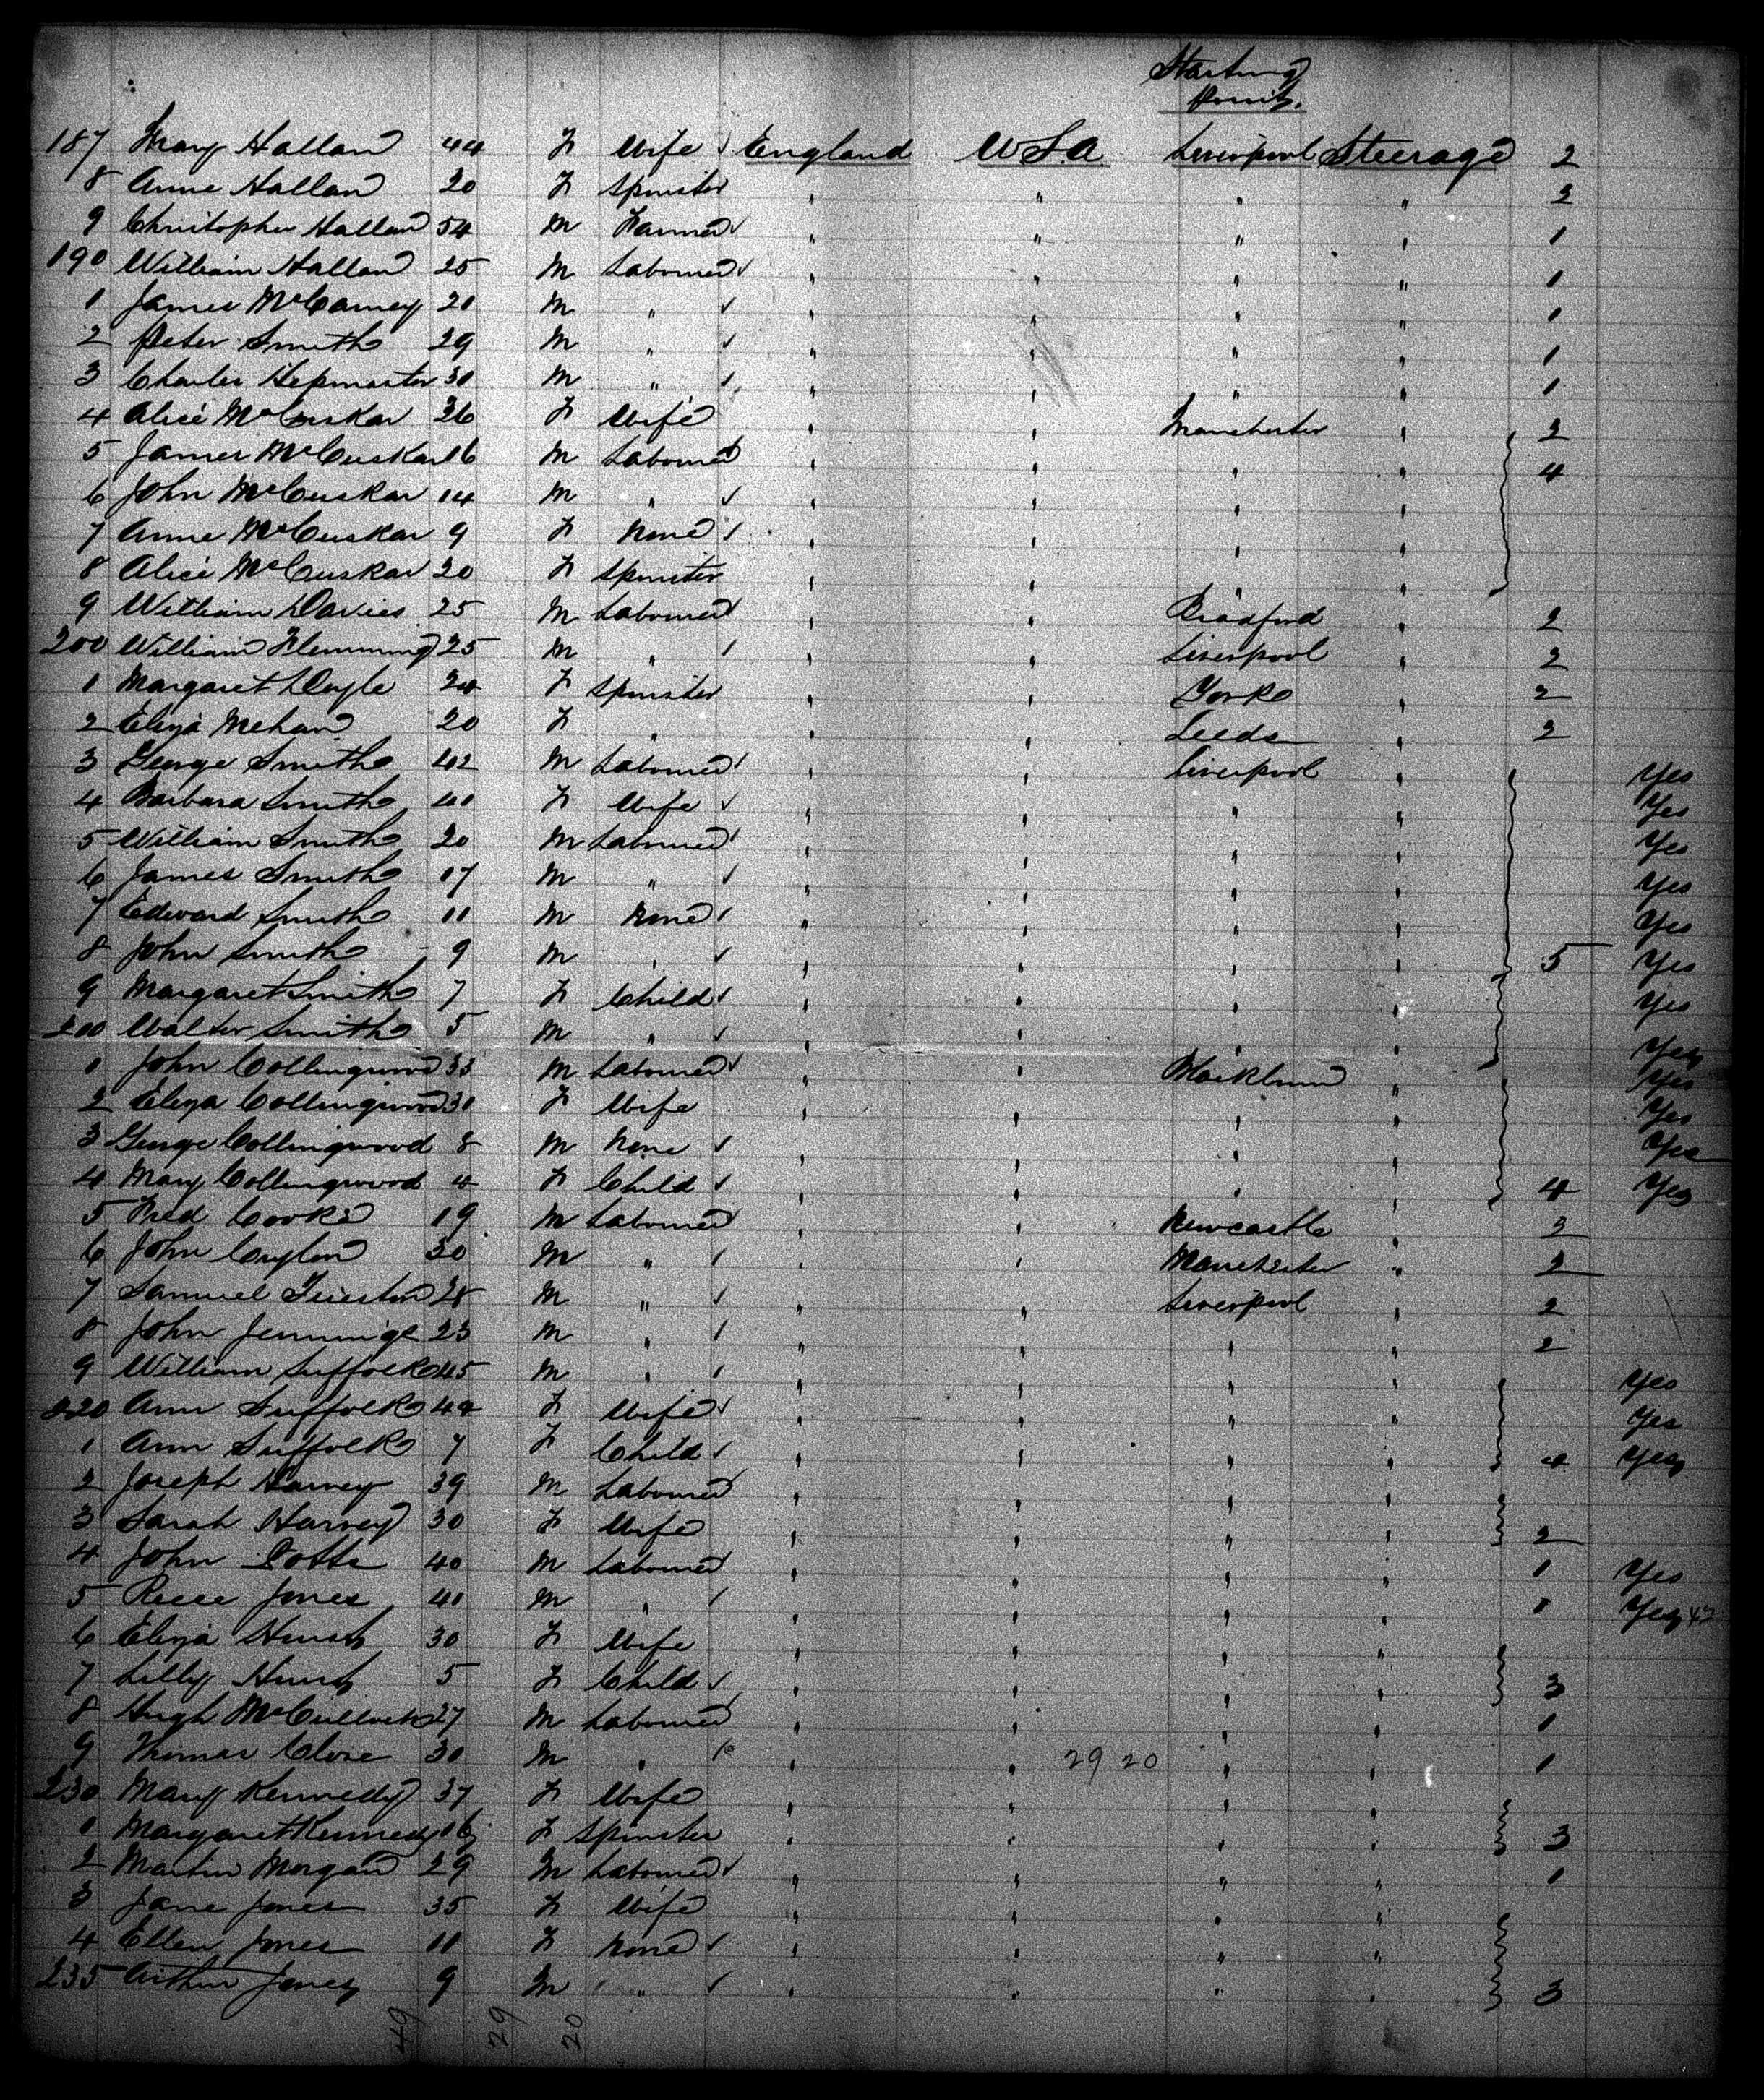 Starting
Point.
187 Mary Hallan 44 F Wife ✓ England USA Liverpool Steerage 2
8 Anne Hallan 20 F Spinster " " " " 2
9 Christopher Hallan 54 M Farmer ✓ " " " " 1
190 William Hallan 25 M Labourer ✓ " " " " 1
1 James McCamey 21 M " ✓ " " " " 1
2 Peter Smith 29 M " ✓ " " " " 1
3 Charles 30 M " ✓ " " " " 1
4 Alice McCuskar 36 F Wife " " Manchester " 2
5 James McCuskar 16 M Labourer " " " " 4
6 John McCuskar 14 M " ✓ " " " "
7 Anne McCuskar 9 F None ✓ " " " "
8 Alice McCuskar 20 F Spinster " " " "
9 William Davies 25 M Labourer " " Bradford " 2
200 William Flemming 25 M " ✓ " " Liverpool " 2
1 Margaret Doyle 24 F Spinster " " York " 2
2 Eliza Mehan 20 F " " " Leeds " 2
3 George Smith 42 M Labourer ✓ " " Liverpool " Yes
4 Barbara Smith 40 F Wife ✓ " " " " Yes
5 William Smith 20 M Labourer ✓ " " " " Yes
6 James Smith 17 M " ✓ " " " " Yes
7 Edward Smith 11 M None ✓ " " " " Yes
8 John Smith 9 M " ✓ " " " " 5 Yes
9 Margaret Smith 7 F Child ✓ " " " " Yes
210 Walter Smith 5 M " ✓ " " " " Yes
1 John Collingwood 33 M Labourer ✓ " " Blackburn " Yes
2 Eliza Collingwood 30 F Wife " " " " Yes
3 George Collingwood 8 M None ✓ " " " " Yes
4 Mary Collingwood 4 F Child ✓ " " " " 4 Yes
5 Fred Cooke 19 M Labourer " " Newcastle " 2
6 John 30 M " ✓ " " Manchester " 2
7 Samuel 28 M " ✓ " " Liverpool " 2
8 John Jennings 23 M " ✓ " " " " 2
9 William Suffolk 45 M " ✓ " " " " Yes
220 Ann Suffolk 44 F Wife ✓ " " " " Yes
1 Ann Suffolk 7 F Child ✓ " " " " 4 Yes
2 Joseph Harvey 39 M Labourer " " " "
3 Sarah Harvey 30 F Wife " " " " 2
4 John Potts 40 M Labourer " " " " 1 Yes
5 Reece Jones 40 M " ✓ " " " " 1 Yes
6 Eliza Hurst 30 F Wife " " " "
7 Lilly Hurst 5 F Child ✓ " " " " 3
8 Hugh McCullock 27 M Labourer " " " " 1
9 Thomas Close 30 M " " " 29 20 " " 1
230 Mary Kennedy 37 F Wife " " " "
1 Margaret Kennedy 16 F Spinster " " " " 3
2 Martin Morgan 29 M Labourer ✓ " " " " 1
3 Jane Jones 35 F Wife " " " "
4 Ellen Jones 11 F None ✓ " " " "
235 Arthur Jones 9 M " ✓ " " " " 3
49 29 20